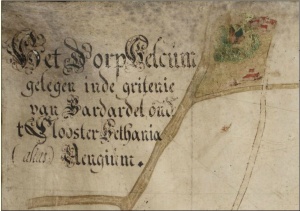 Het Dorp Eelcum
gelegen inde gritenie
van Bardardel ond
t'Clooster Bethania
(alias) Aengium.